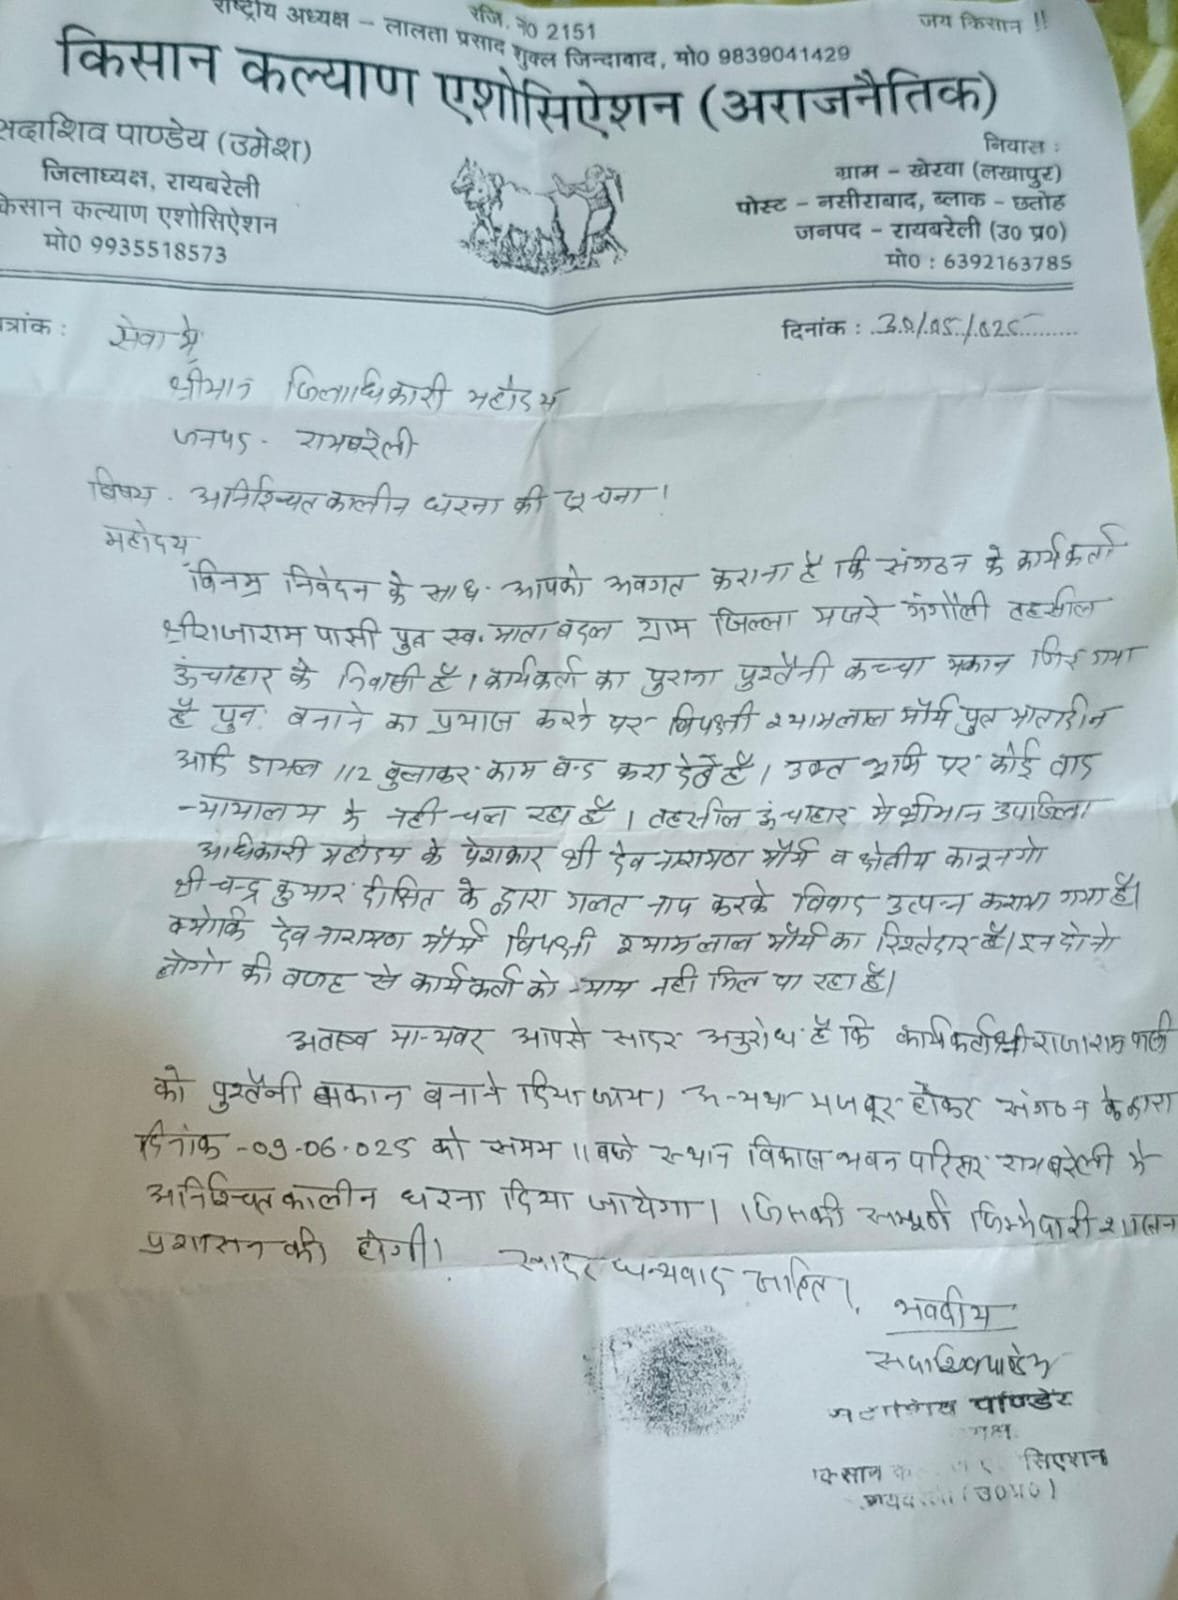 रजि. नं0 2151
जय किसान !!
राष्ट्रीय अध्यक्ष – लालता प्रसाद शुक्ल जिन्दाबाद, मो0 9839041429
किसान कल्याण एशोसिऐशन (अराजनैतिक)
सदाशिव पाण्डेय (उमेश)
जिलाध्यक्ष, रायबरेली
किसान कल्याण एशोसिऐशन
मो0 9935518573
निवास :
ग्राम – खेरवा (लखापुर)
पोस्ट – नसीराबाद, ब्लाक – छतोह
जनपद – रायबरेली (उ0 प्र0)
मो0 : 6392163785
त्रांक :
दिनांक : 30/05/025
सेवा मे
श्रीमान जिलाधिकारी महोदय
जनपद - रायबरेली
बिषय - अनिश्चितकालीन धरना की सूचना।
महोदय
विनम्र निवेदन के साथ आपको अवगत कराना है कि संगठन के कार्यकर्ता
श्री राजाराम पासी पुत्र स्व. माता बदल ग्राम जिल्ला मजरे गंगौली तहसील
ऊंचाहार के निवासी है। कार्यकर्ता का पुराना पुश्तैनी कच्चा मकान गिर गया
है पुनः बनाने का प्रयास करने पर बिपक्षी श्यामलाल मौर्य पुत्र मातादीन
आदि डायल 112 बुलाकर काम बन्द करा देते है। उक्त भूमि पर कोई वाद
न्यायालय मे नही चल रहा है। तहसील ऊंचाहार मे श्रीमान उपजिला
अधिकारी महोदय के पेशकार श्री देव नारायण मौर्य व क्षेत्रीय कानूनगो
श्री चन्द्र कुमार दीक्षित के द्वारा गलत नाप करके विवाद उत्पन्न कराया गया है।
क्योकि देव नारायण मौर्य विपक्षी श्यामलाल मौर्य का रिश्तेदार है। इन दोनो
लोगो की वजह से कार्यकर्ता को न्याय नही मिल पा रहा है।
अतएव मान्यवर आपसे सादर अनुरोध है कि कार्यकर्ता श्री राजाराम पासी
को पुश्तैनी मकान बनाने दिया जाय। अन्यथा मजबूर होकर संगठन के द्वारा
दिनांक -09-06-025 को समय 11 बजे स्थान विकास भवन परिसर रायबरेली मे
अनिश्चितकालीन धरना दिया जायेगा। जिसकी सम्पूर्ण जिम्मेदारी शासन
प्रशासन की होगी। सादर धन्यवाद सहित।
भवदीय
सदाशिव पाण्डेय
पाण्डेय
किसान सिएशन
(उ0प्र0)